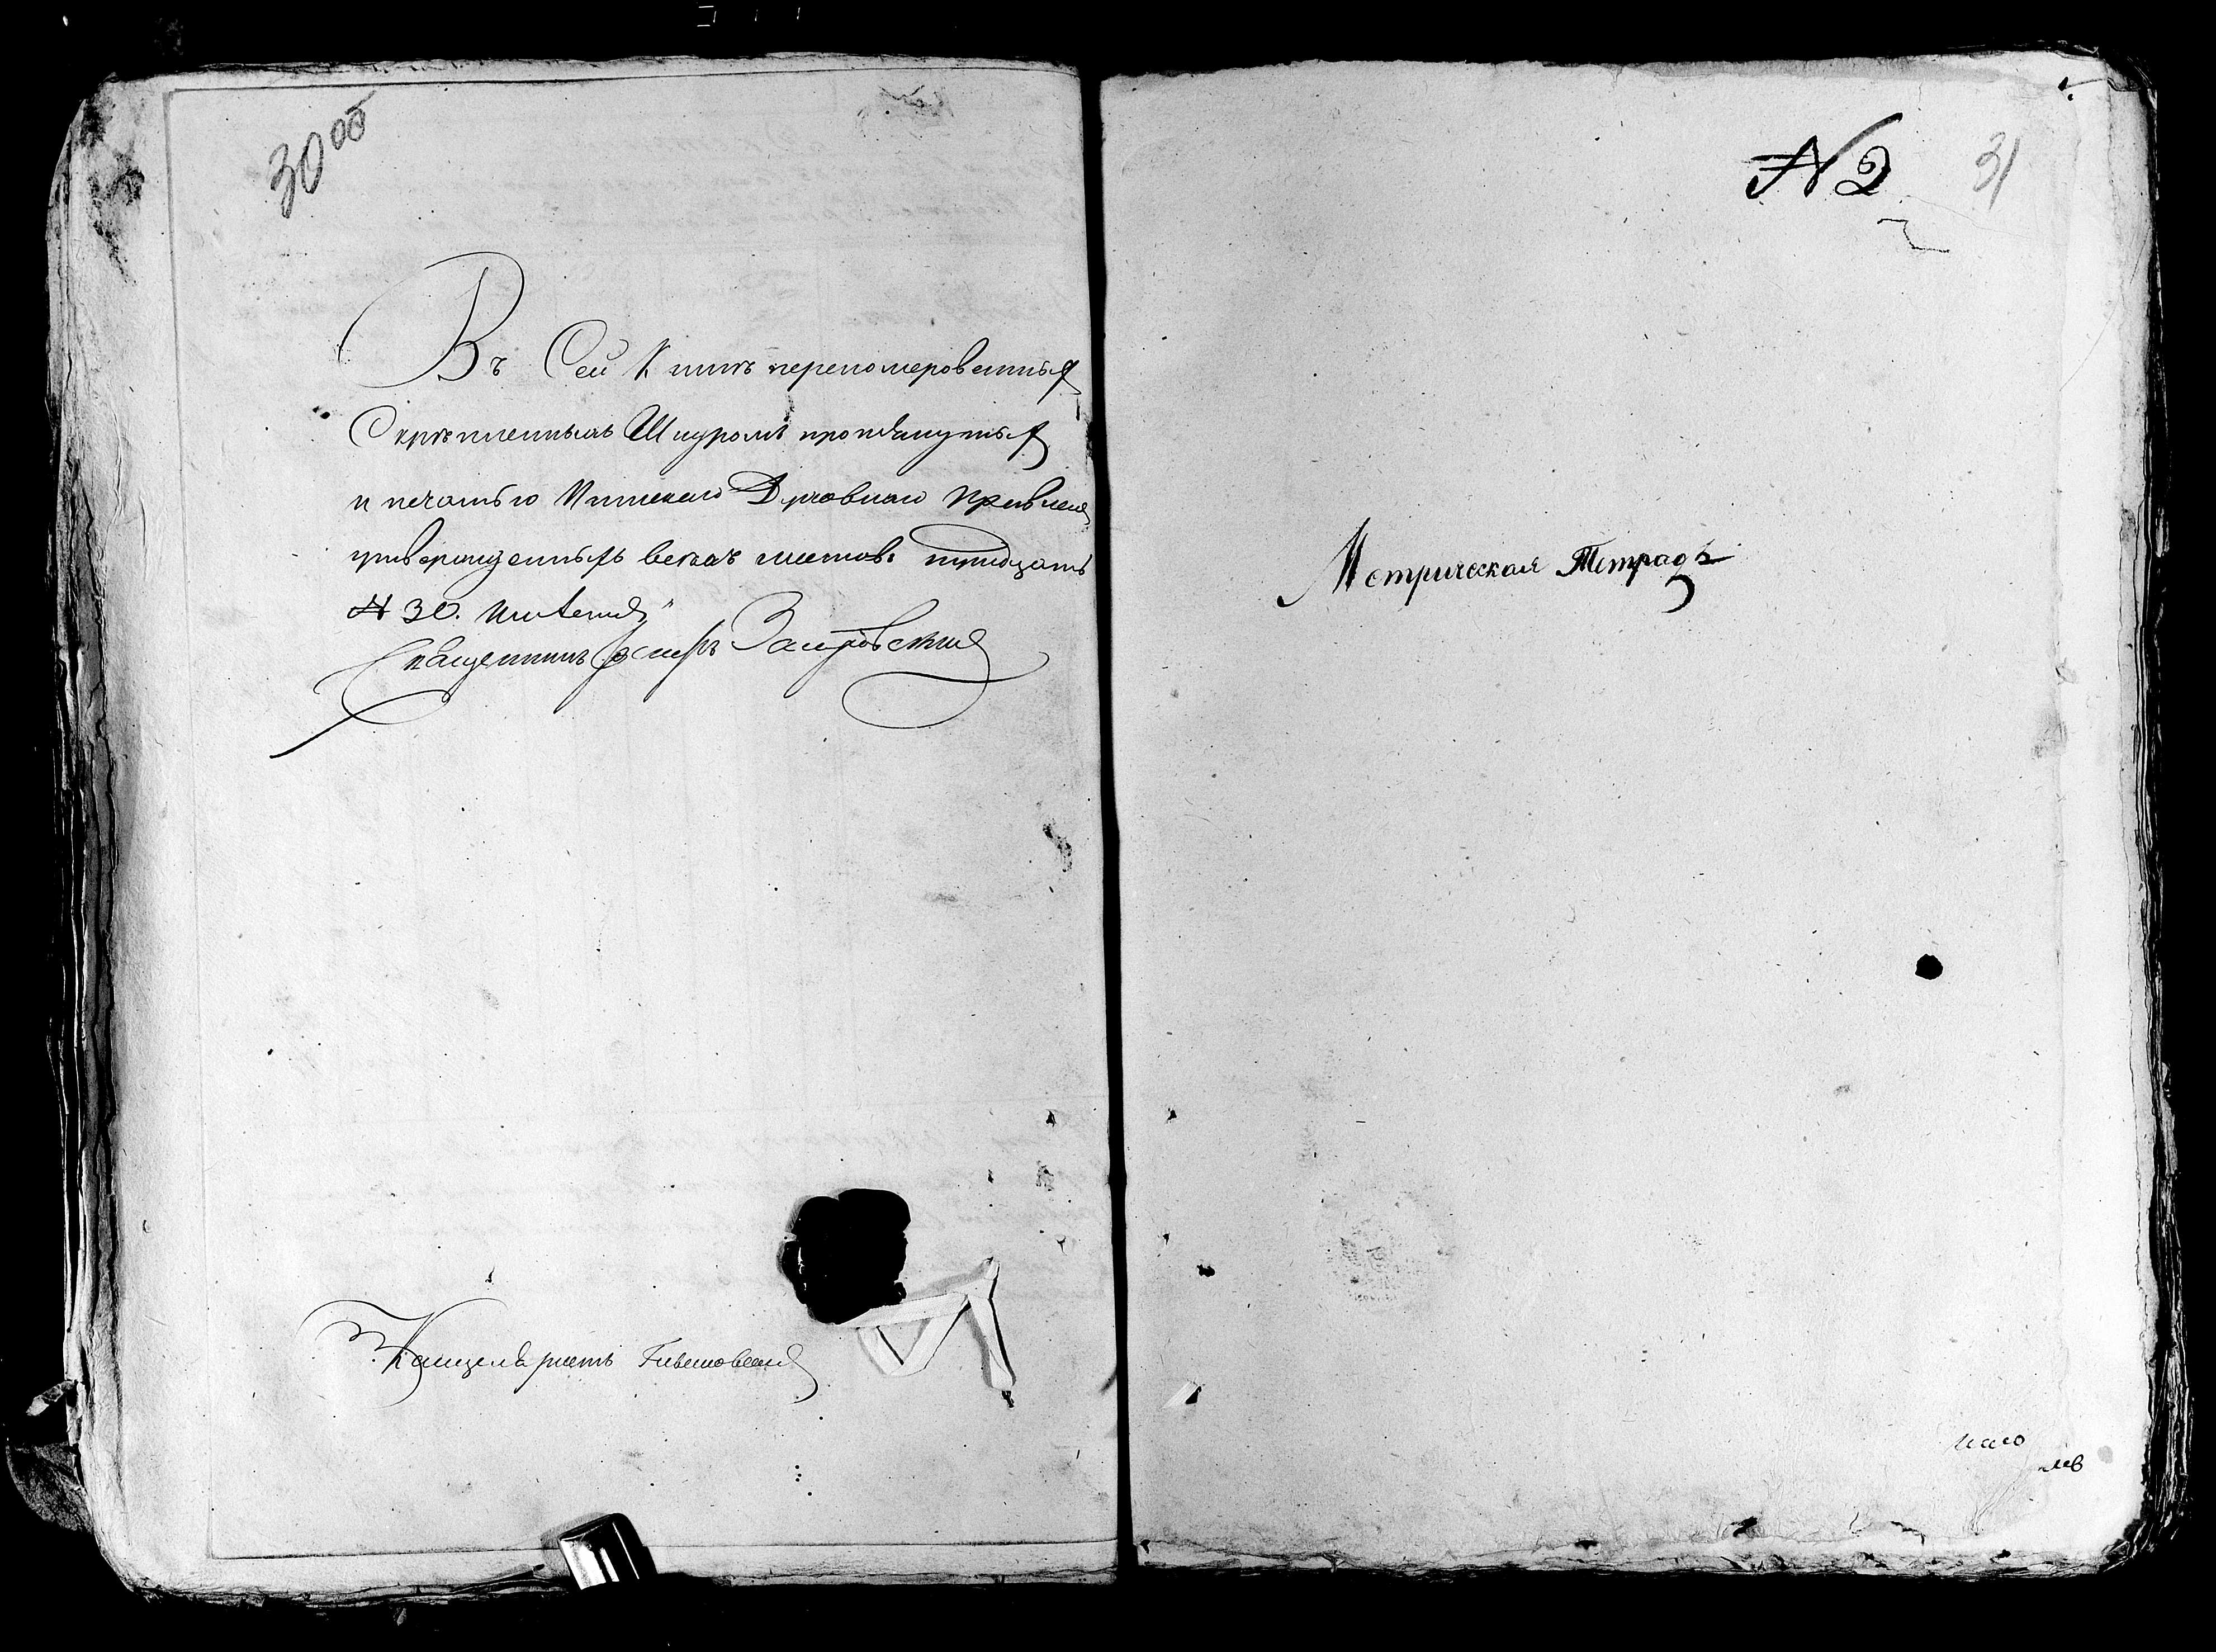 30 об
Въ Сей Книгѣ переномерованныя
Скрѣпленныхъ Шнуромъ протянутыя
и печатью Пинскаго Духовнаго Правлен
утвержденныхъ всехъ листовъ тридцать
№ 30.
Священникъ Іосифъ
Канцеляристъ
№ 2
31
Метрическая Тетрадь